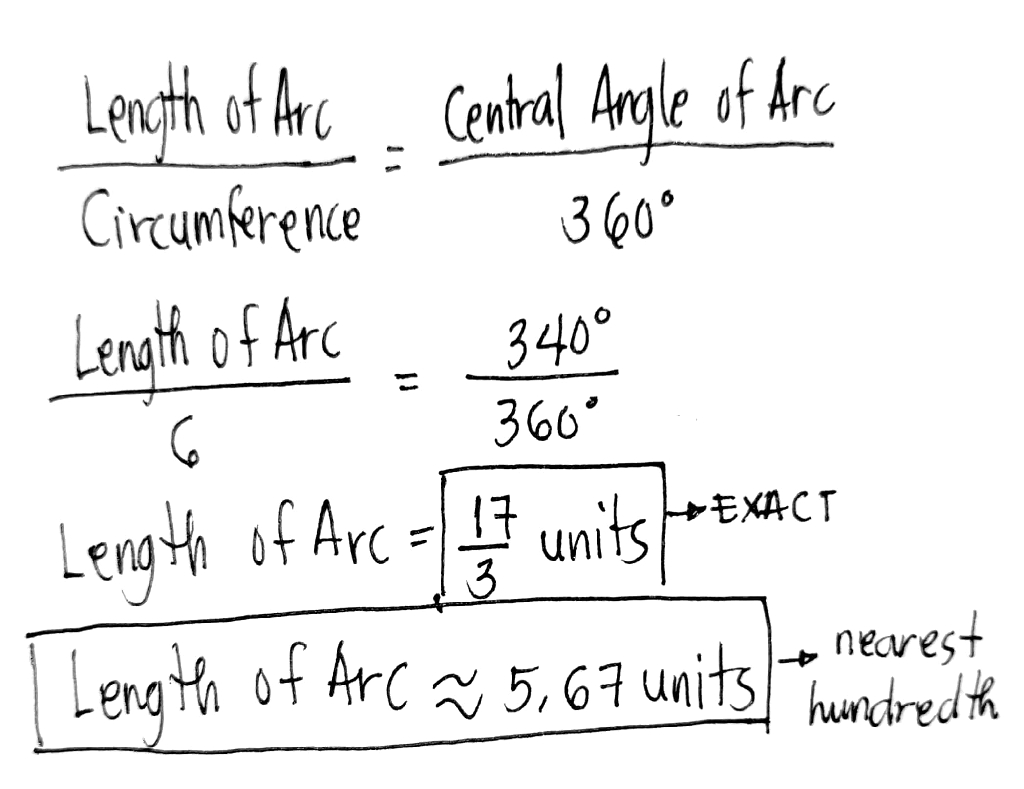 Length of Arc / Circumference = Central Angle of Arc / 360°
Length of Arc / 6 = 340° / 360°
Length of Arc = 17/3 units → EXACT
Length of Arc ≈ 5,67 units → nearest hundredth